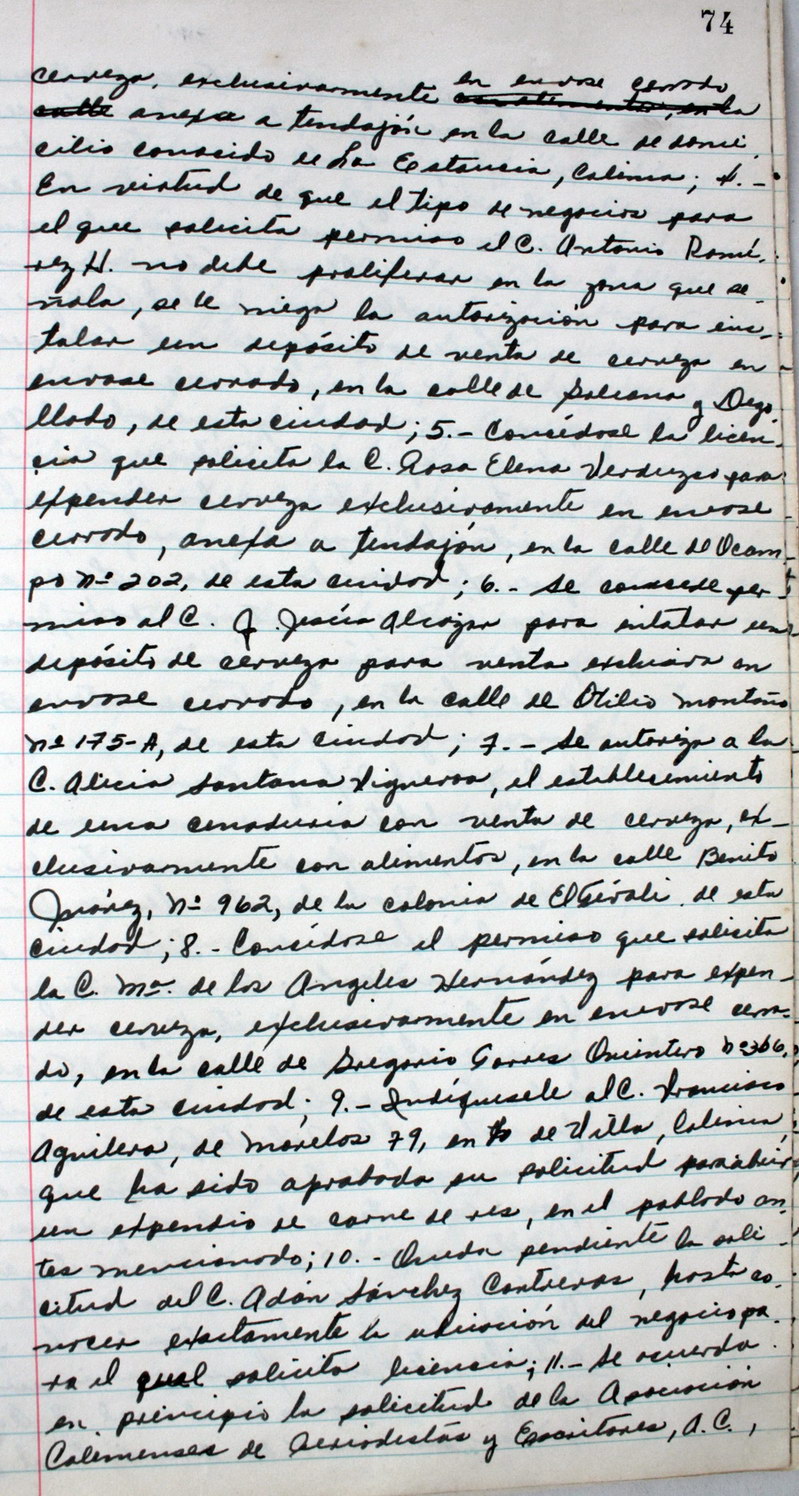 74
cerveza, exclusivamente en envase cerrado
calle anexa a tendajón en la calle de domi
cilio conocido de La Estancia, Colima; 4.-
En virtud de que el tipo de negocios para
el que solicita permiso el C. Antonio Ramí-
rez H. no debe proliferar en la zona que se-
ñala, se le niega la autorización para ins-
talar un depósito de venta de cerveza en
envase cerrado, en la calle de y Dego-
llado, de esta ciudad; 5.- Concédase la licen-
cia que solicita la C. Rosa Elena Verduzco para
expender cerveza exclusivamente en envase
cerrado, anexa a tendajón, en la calle de Ocam-
po Nº 202, de esta ciudad; 6.- Se concede per-
miso al C. J. Jesús Alcazar para intalar un
depósito de cerveza para venta exclusiva en
envase cerrado, en la calle de Otilio Montaño
Nº 175-A, de esta ciudad; 7.- Se autoriza a la
C. Alicia Santana Figueroa, el establecimiento
de una cenaduría con venta de cerveza, ex-
clusivamente con alimentos, en la calle Benito
Juárez, Nº 962, de la colonia de de esta
ciudad; 8.- Concédase el permiso que solicita
la C. Ma. de los Angeles Hernández para expen-
der cerveza, exclusivamente en envase cerra-
do, en la calle de Gregorio Torres Quintero Nº 366,
de esta ciudad; 9.- Indíquesele al C. Francisco
Aguilera, de Morelos 79, en de Villa, Colima,
que ha sido aprobada su solicitud para abrir
un expendio de carne de res, en el poblado an-
tes mencionado; 10.- Queda pendiente la soli-
citud del C. Adán Sánchez Contreras, hasta co-
nocer exactamente la ubicación del negocio pa-
ra el qual solicita licencia; 11.- Se acuerda
en principio la solicitud de la Asociación
Colimenses de Periodistas y Escritores, A.C.,